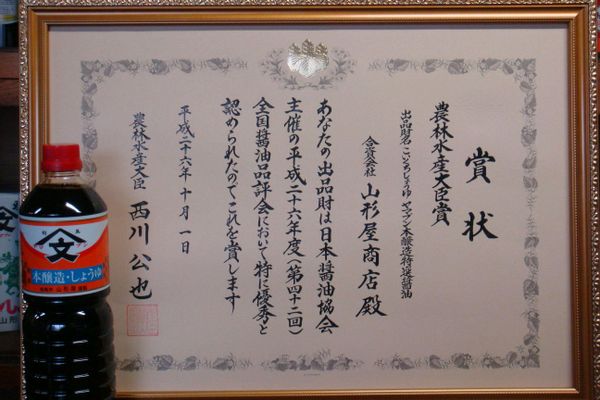 賞状
農林水産大臣賞
出品財名 こいくちしょうゆ ヤマブン本醸造特選醤油
合資会社 山形屋商店殿
あなたの出品財は日本醤油協会
主催の平成二十六年度(第四十二回)
全国醤油品評会において特に優秀と
認められたのでこれを賞します
平成二十六年十月一日
農林水産大臣 西川公也
文
本醸造・しょうゆ
山形屋商店